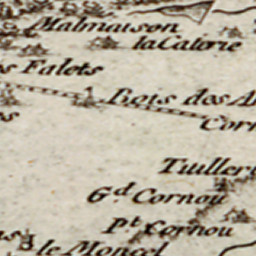 Malmaison
la Calerie
s Falots
Bois des A
s
Corn
Tuilleri
G.d Cornou
P.t Cornou
ns
le Moncel